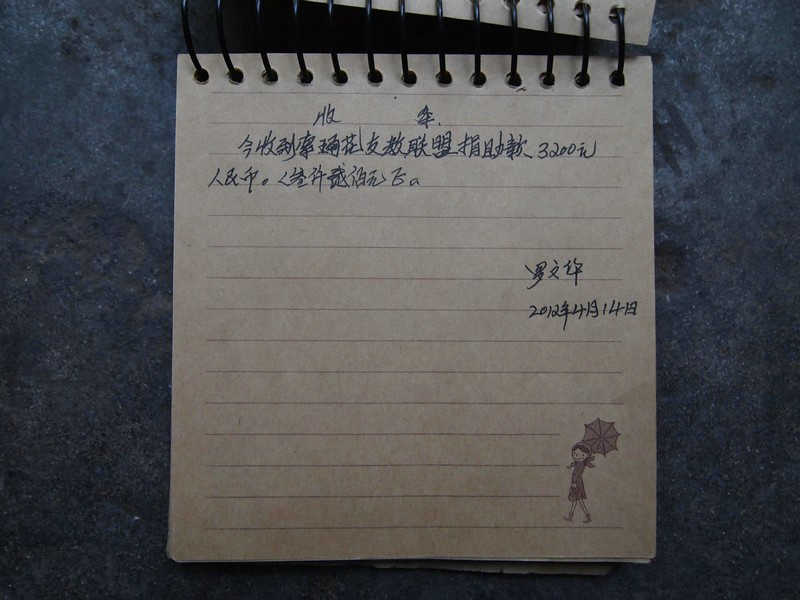 收 条.
今收到索玛花支教联盟捐助款、3200元
人民币。〈叁仟贰佰元〉正。
罗文华
2012年4月14日